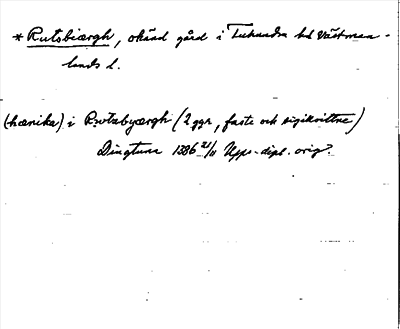 * Rutsbiærgh, okänd gård i Tuhundra hd Västman-
lands l.
(hænika) i Rutabyærgh (2 ggr, faste och sigillvittne)
Dingtuna 1386 21/11 Upps-dipl. orig.